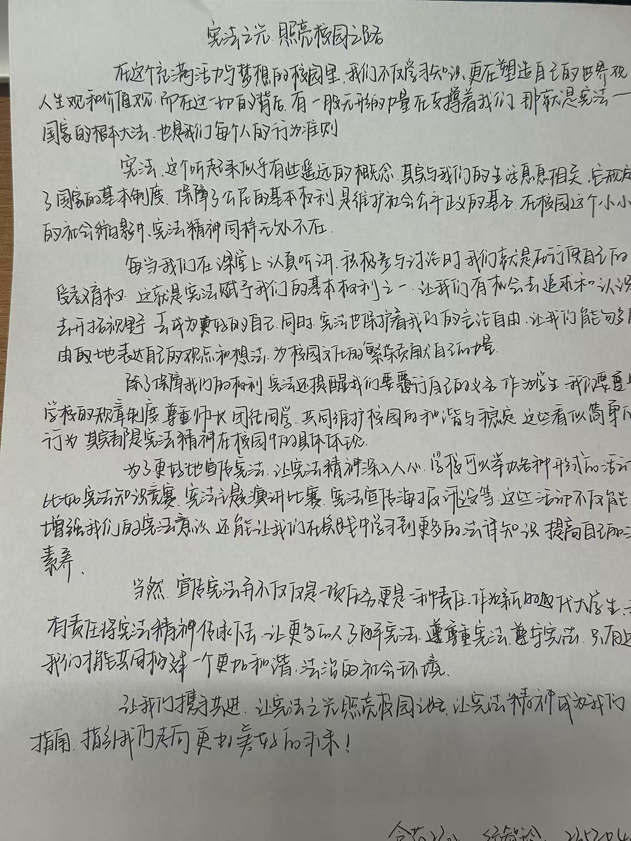 宪法之光,照亮校园之路
在这个充满活力与梦想的校园里,我们不仅学习知识,更在塑造自己的世界观
人生观和价值观.而在这一切的背后,有一股无形的力量在支撑着我们,那就是宪法一
国家的根本大法,也是我们每个人的行为准则
宪法,这个听起来似乎有些遥远的概念,其实与我们的生活息息相关,它规定
了国家的基本制度,保障了公民的基本权利,是维护社会公平正义的基石.在校园这个小小
的社会缩影中,宪法精神同样无处不在.
每当我们在课堂上认真听讲,积极参与讨论时,我们就是在行使自己的
受教育权.这就是宪法赋予我们的基本权利之一.让我们有机会去追求和认识
去开拓视野,去成为更好的自己.同时,宪法也保护着我们的言论自由,让我们能够
由地表达自己的观点和想法,为校园文化的繁荣贡献自己的力量.
除了保障我们的权利,宪法还提醒我们要履行自己的义务.作为学生,我们要
学校的规章制度,尊重师长,团结同学,共同维护校园的和谐与稳定.这些看似简单
行为,其实都是宪法精神在校园中的具体体现.
为了更好地宣传宪法,让宪法精神深入人心,学校可以举办各种形式的活动
比如宪法知识竞赛,宪法主题演讲比赛,宪法宣传海报设等.这些活动不仅能
增强我们的宪法意识,还能让我们在实践中学习到更多的法律知识,提高自己的
素养.
当然,宣传宪法并不仅仅是一项任务,更是一种责任.作为新时代大学生,
有责任将宪法精神传承下去,让更多的人了解宪法,尊重宪法,遵守宪法.只有
我们才能共同构建一个更加和谐、法治的社会环境.
让我们携手共进,让宪法之光照亮校园之路,让宪法精神成为我们
指南,指引我们走向更加美好的未来!